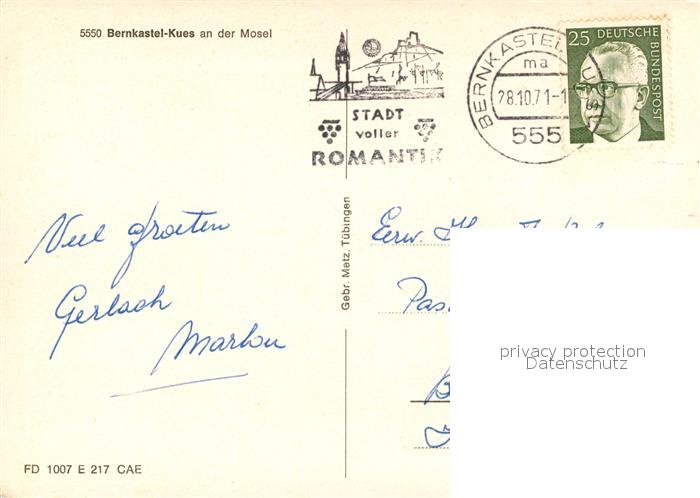 5550 Bernkastel-Kues an der Mosel
STADT
voller
ROMANTIK
BERNKASTEL
ma
28.10.71-1
555
25 DEUTSCHE
BUNDESPOST
Veel groeten
Gerlach
Marlou
Gebr. Metz, Tübingen
Eerw.
Pas
privacy protection
Datenschutz
FD 1007 E 217 CAE